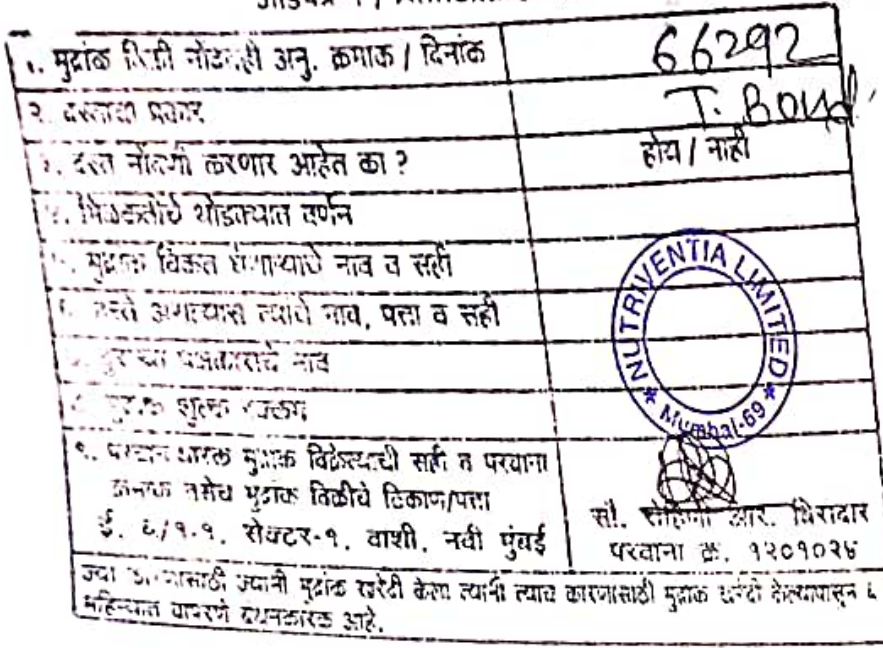 १. मुद्रांक विक्री नोंदवही अनु. क्रमांक / दिनांक
66292
२. दस्ताचा प्रकार
T. Bond.
३. दस्त नोंदणी करणार आहेत का ?
होय / नाही
४. मिळकतीचे थोडक्यात वर्णन
५. मुद्रांक विकत घेणाऱ्याचे नाव व सही
हस्ते असल्यास त्याचे नाव, पत्ता व सही
दुसऱ्या पक्षकाराचे नाव
मुद्रांक शुल्क रक्कम
NUTRIVENTIA LIMITED
* Mumbai-69 *
९. परवानाधारक मुद्रांक विक्रेत्याची सही व परवाना
क्रमांक तसेच मुद्रांक विक्रीचे ठिकाण/पत्ता
ई. ६/१-१, सेक्टर-१, वाशी, नवी मुंबई
सौ. रोहिणी आर. बिरादार
परवाना क्र. १२०१०२४
ज्या कारणासाठी ज्यांनी मुद्रांक खरेदी केला त्यांनी त्याच कारणासाठी मुद्रांक खरेदी केल्यापासून ६
महिन्यात वापरणे बंधनकारक आहे.